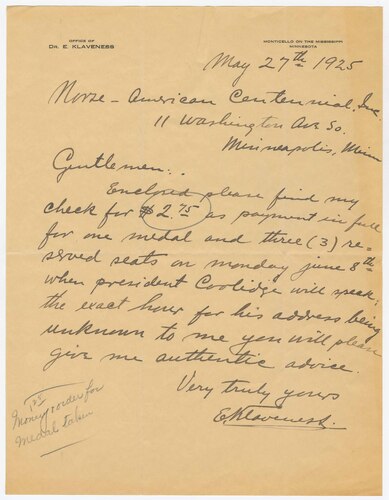 OFFICE OF
DR. E. KLAVENESS
MONTICELLO ON THE MISSISSIPPI
MINNESOTA
May 27th 1925
Norse-American Centennial, Inc.
11 Washington Ave So.
Minneapolis, Minn
Gentlemen:
Enclosed please find my
check for $2.75 as payment in full
for one medal and three (3) re-
served seats on monday june 8th
when president Coolidge will speak;
the exact hour for his address being
unknown to me you will please
give me authentic advice.
Very truly yours
E. Klaveness.
Money order for
medal taken